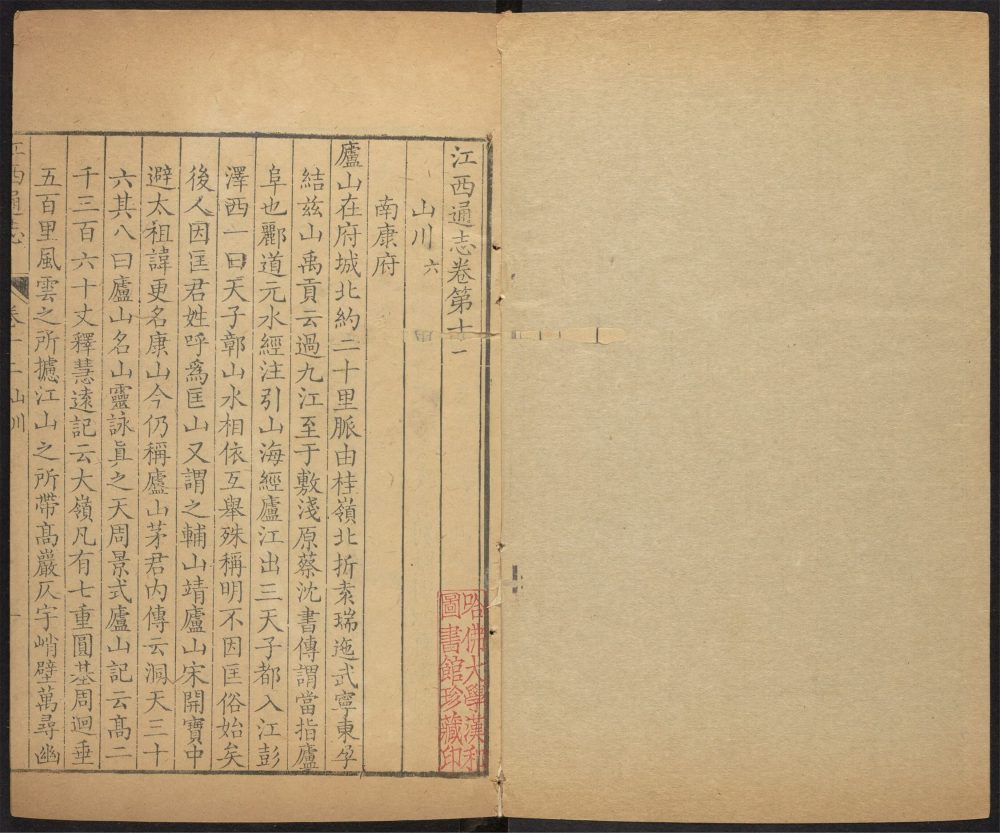 江西通志卷第十二
山川六
南康府
廬山在府城北約二十里脈由桂嶺北折袤瑞迤武寧東孕
結兹山禹貢云過九江至于敷淺原蔡沈書傳謂當指廬
阜也酈道元水經注引山海經廬江出三天子都入江彭
澤西一曰天子鄣山水相依互舉殊稱明不因匡俗始矣
後人因匡君姓呼爲匡山又謂之輔山靖廬山宋開寶中
避太祖諱更名康山今仍稱廬山茅君内傳云洞天三十
六其八曰廬山名山靈詠眞之天周景式廬山記云髙二
千三百六十丈釋慧遠記云大嶺凡有七重圓基周迴垂
五百里風雲之所攄江山之所帶髙巖仄宇峭壁萬尋幽
江西通志 卷十二 山川 一
哈佛大學漢和
圖書館珍藏印